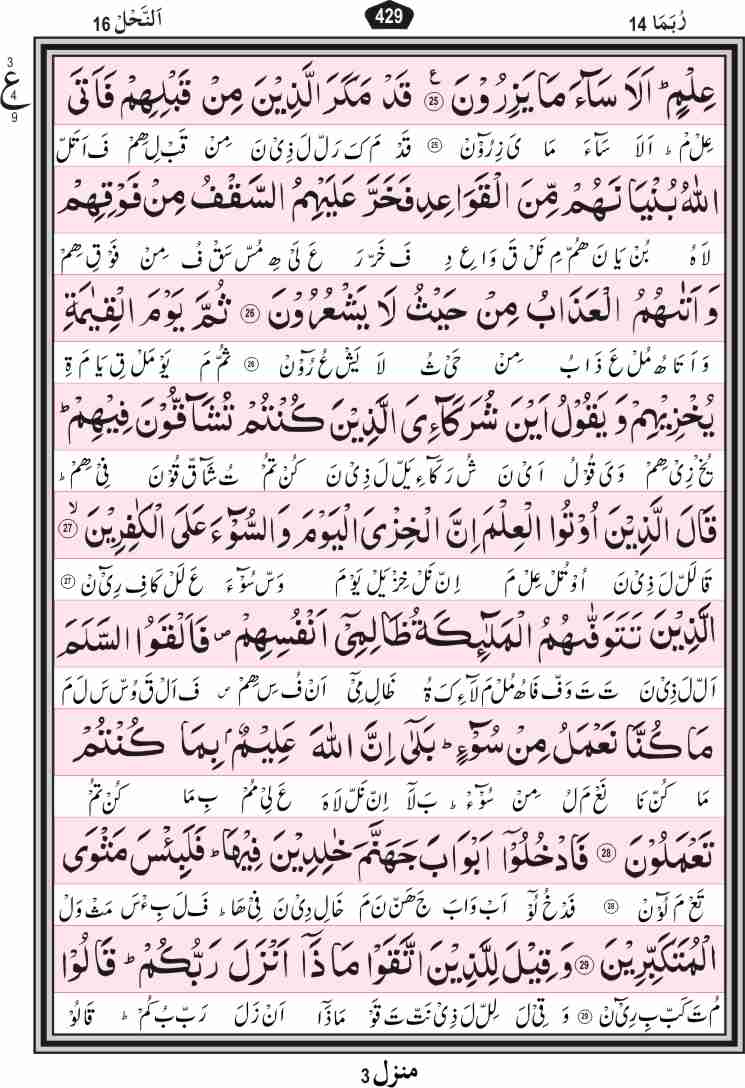 رُبَمَا 14 429 اَلنَّحْل 16
3
ع
4
9
عِلْمٍ ؕ اَلَا سَآءَ مَا يَزِرُوْنَ ع 25 قَدْ مَكَرَ الَّذِيْنَ مِنْ قَبْلِهِمْ فَاَتَى
عِلْ مْ ؕ اَلَا سَآءَ مَا يَ زِ رُوْٓنْ 25 قَدْ مَ كَ رَ لْ لَ ذِيْ نَ مِنْ قَبْ لِ هِمْ فَ اَ تَلْ
اللّٰهُ بُنْيَانَهُمْ مِّنَ الْقَوَاعِدِ فَخَرَّ عَلَيْهِمُ السَّقْفُ مِنْ فَوْقِهِمْ
لَا هُ بُنْ يَا نَ هُمْ مِ نَلْ قَ وَا عِ دِ فَ خَرْ رَ عَ لَىْ هِ مُسْ سَقْ فُ مِنْ فَوْ قِ هِمْ
وَ اَتٰىهُمُ الْعَذَابُ مِنْ حَيْثُ لَا يَشْعُرُوْنَ 26 ثُمَّ يَوْمَ الْقِيٰمَةِ
وَ اَ تَا هُ مُلْ عَ ذَا بُ مِنْ حَىْ ثُ لَا يَشْ عُ رُوْٓنْ 26 ثُمْ مَ يَوْ مَلْ قِ يَا مَ ةِ
يُخْزِيْهِمْ وَ يَقُوْلُ اَيْنَ شُرَكَآءِىَ الَّذِيْنَ كُنْتُمْ تُشَآقُّوْنَ فِيْهِمْ ؕ
يُخْ زِىْ هِمْ وَ يَ قُوْ لُ اَىْ نَ شُ رَ كَآ ءِ يَلْ لَ ذِىْ نَ كُنْ تُمْ تُ شَآقْ قُوْ نَ فِىْ هِمْ ؕ
قَالَ الَّذِيْنَ اُوْتُوا الْعِلْمَ اِنَّ الْخِزْىَ الْيَوْمَ وَ السُّوْٓءَ عَلَى الْكٰفِرِيْنَ ۙ 27
قَا لَلْ لَ ذِىْ نَ اُوْ تُلْ عِلْ مَ اِنْ نَلْ خِزْ يَلْ يَوْ مَ وَسْ سُوْٓ ءَ عَ لَلْ كَا فِ رِىْٓنْ 27
الَّذِيْنَ تَتَوَفّٰىهُمُ الْمَلٰٓئِكَةُ ظَالِمِىْٓ اَنْفُسِهِمْ ص فَاَلْقَوُا السَّلَمَ
اَلْ لَ ذِىْ نَ تَ تَ وَفْ فَا هُ مُلْ مَ لَآ ءِ كَ ةُ ظَا لِ مِىْٓ اَنْ فُ سِ هِمْ ص فَ اَلْ قَ وُسْ سَ لَ مَ
مَا كُنَّا نَعْمَلُ مِنْ سُوْٓءٍ ؕ بَلٰٓى اِنَّ اللّٰهَ عَلِيْمٌۢ بِمَا كُنْتُمْ
مَا كُنْ نَا نَعْ مَ لُ مِنْ سُوْٓءْ ؕ بَ لَآ اِنْ نَلْ لَا هَ عَ لِىْ مُمْ بِ مَا كُنْ تُمْ
تَعْمَلُوْنَ 28 فَادْخُلُوْٓا اَبْوَابَ جَهَنَّمَ خٰلِدِيْنَ فِيْهَا ؕ فَلَبِئْسَ مَثْوَى
تَعْ مَ لُوْٓنْ 28 فَدْ خُ لُوْٓ اَبْ وَا بَ جَ هَنْ نَ مَ خَا لِ دِىْ نَ فِىْ هَا ؕ فَ لَ بِءْ سَ مَثْ وَلْ
الْمُتَكَبِّرِيْنَ 29 وَ قِيْلَ لِلَّذِيْنَ اتَّقَوْا مَاذَآ اَنْزَلَ رَبُّكُمْ ؕ قَالُوْا
مُ تَ كَبْ بِ رِىْٓنْ 29 وَ قِىْ لَ لِلْ لَ ذِىْ نَتْ تَ قَوْ مَا ذَآ اَنْ زَلَ رَبْ بُ كُمْ ؕ قَا لُوْ
منزل 3